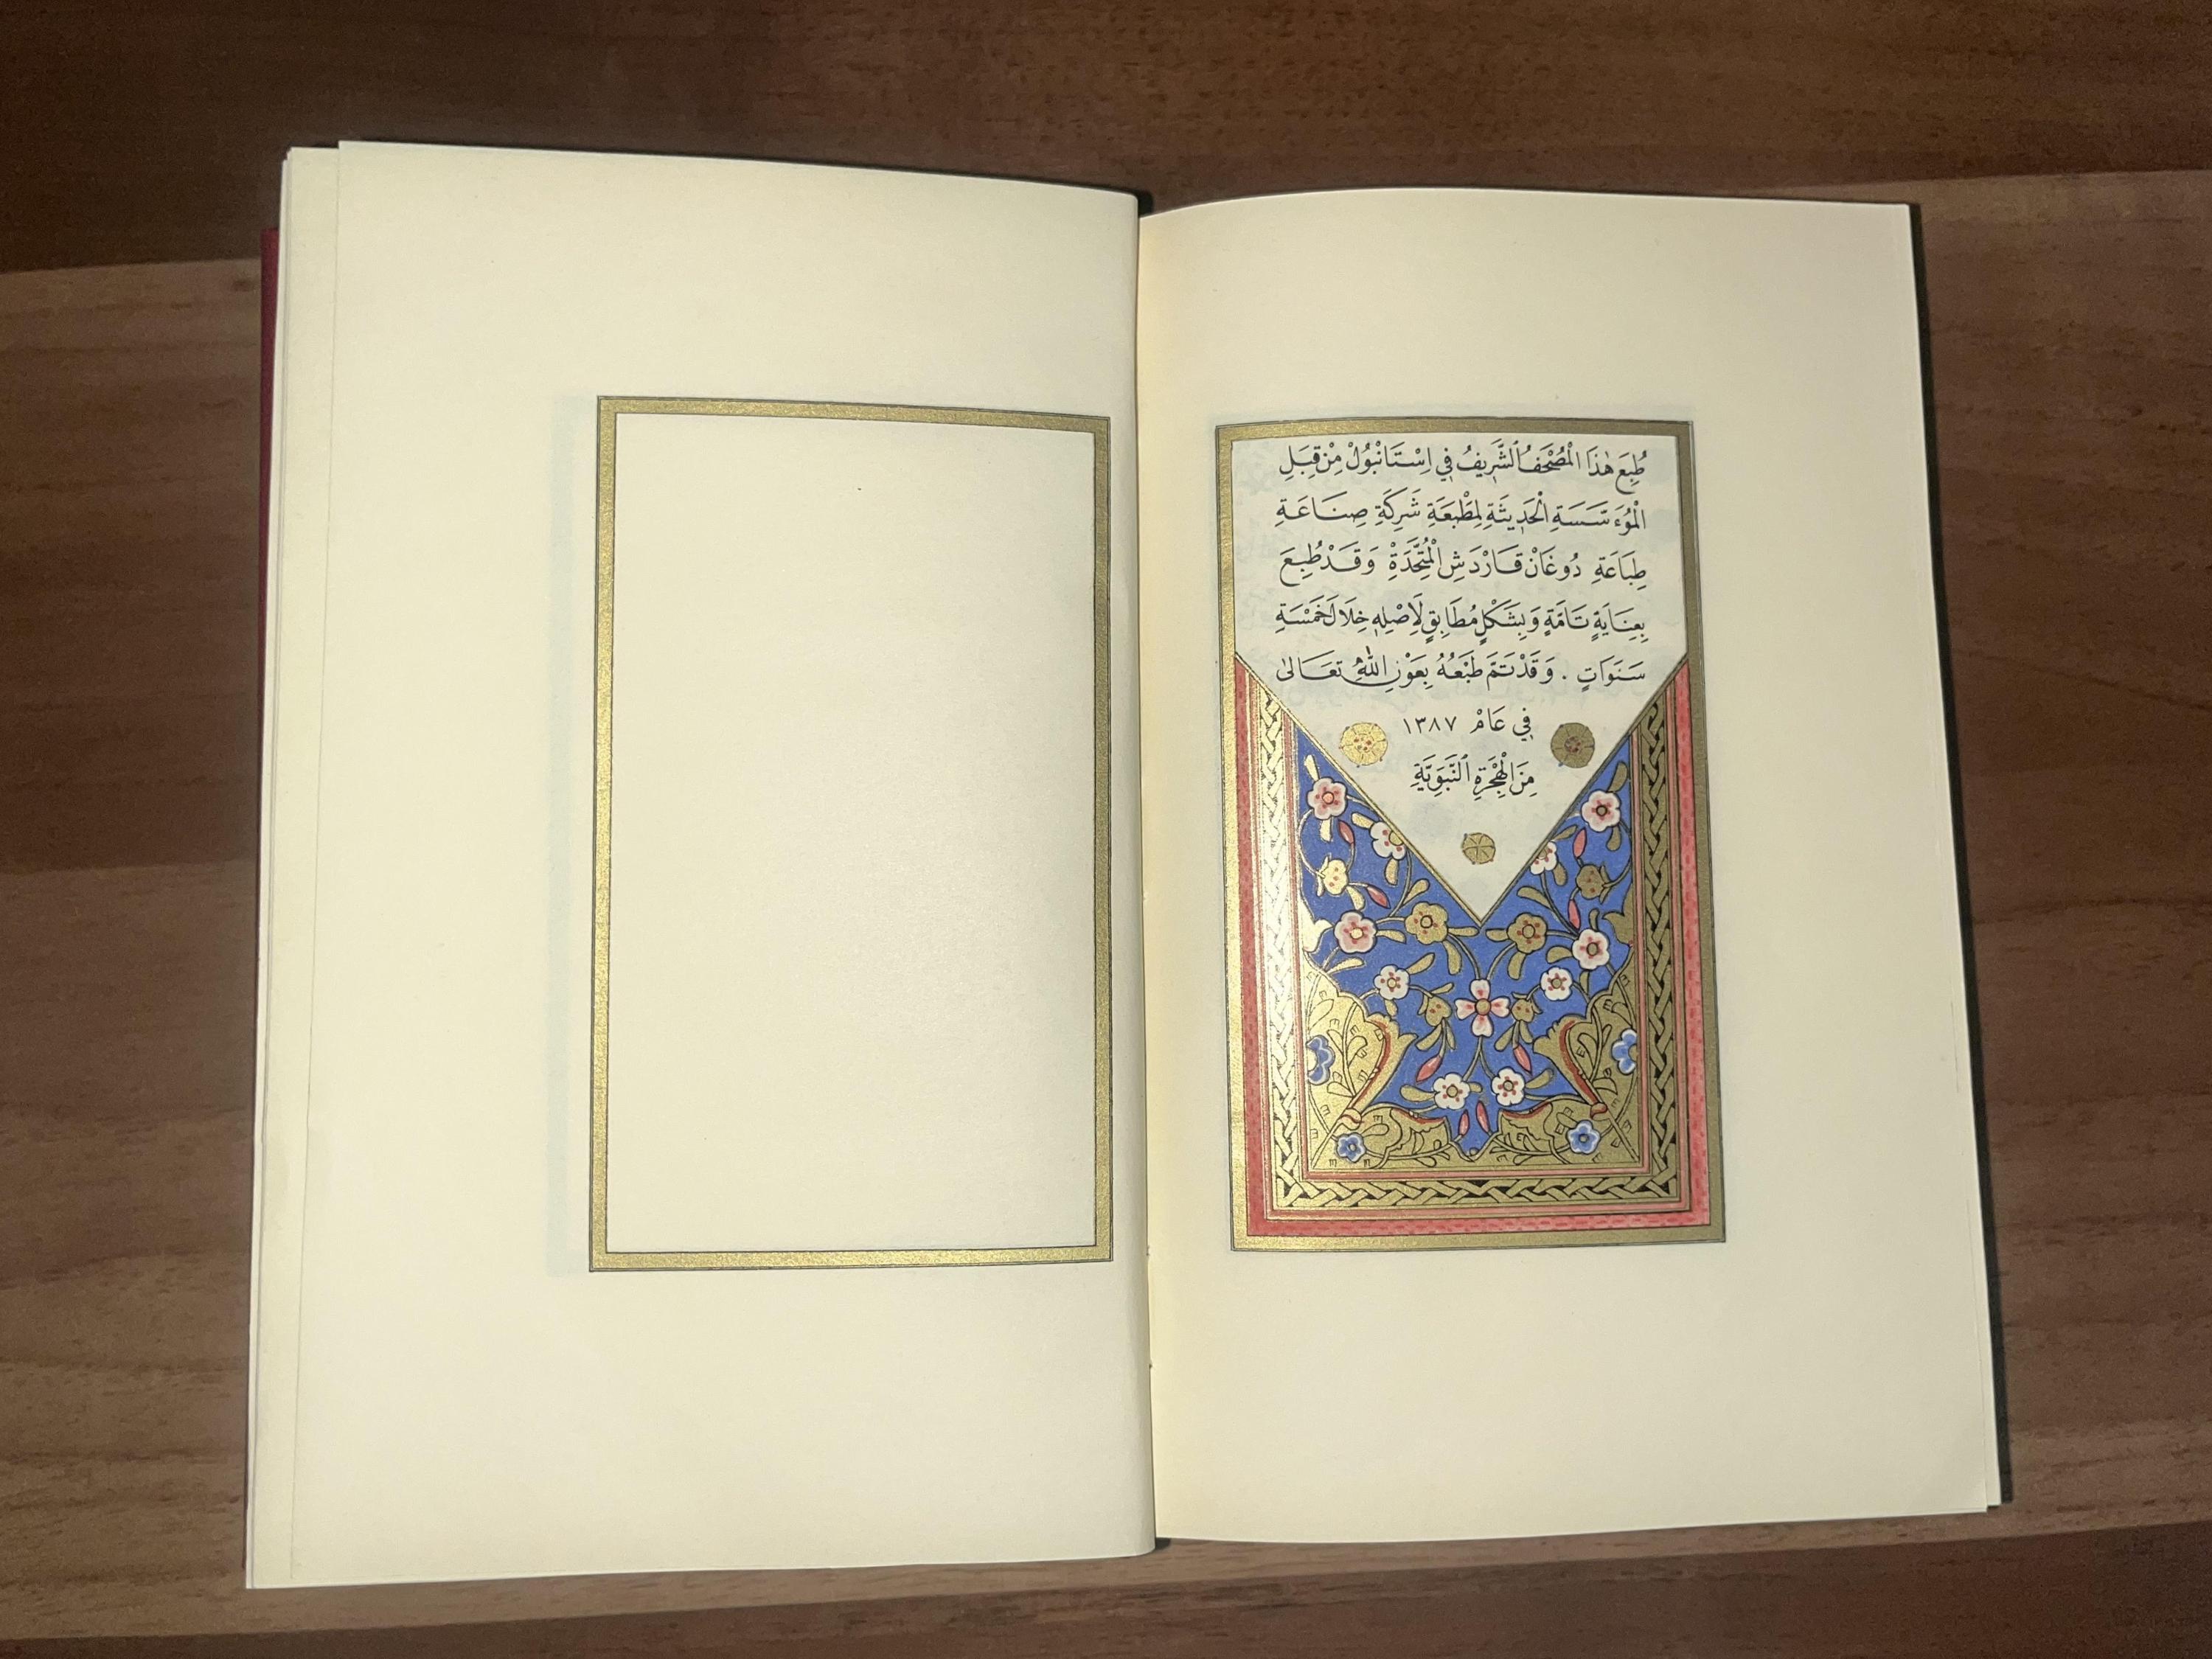 طُبِعَ هٰذَا الْمُصْحَفُ الشَّرِيفُ فِي اِسْتَانْبُولْ مِنْ قِبَلِ
الْمُؤَسَّسَةِ الْحَدِيثَةِ لِمَطْبَعَةِ شَرِكَةِ صِنَاعَةِ
طِبَاعَةِ دُوغَانْ قَارْدَشِ الْمُتَّحِدَةِ وَقَدْ طُبِعَ
بِعِنَايَةٍ تَامَّةٍ وَبِشَكْلٍ مُطَابِقٍ لِاَصْلِهِ خِلَالَ خَمْسَةِ
سَنَوَاتٍ . وَقَدْ تَمَّ طَبْعُهُ بِعَوْنِ اللهِ تَعَالٰى
فِي عَامْ ١٣٨٧
مِنَ الْهِجْرَةِ النَّبَوِيَّةِ